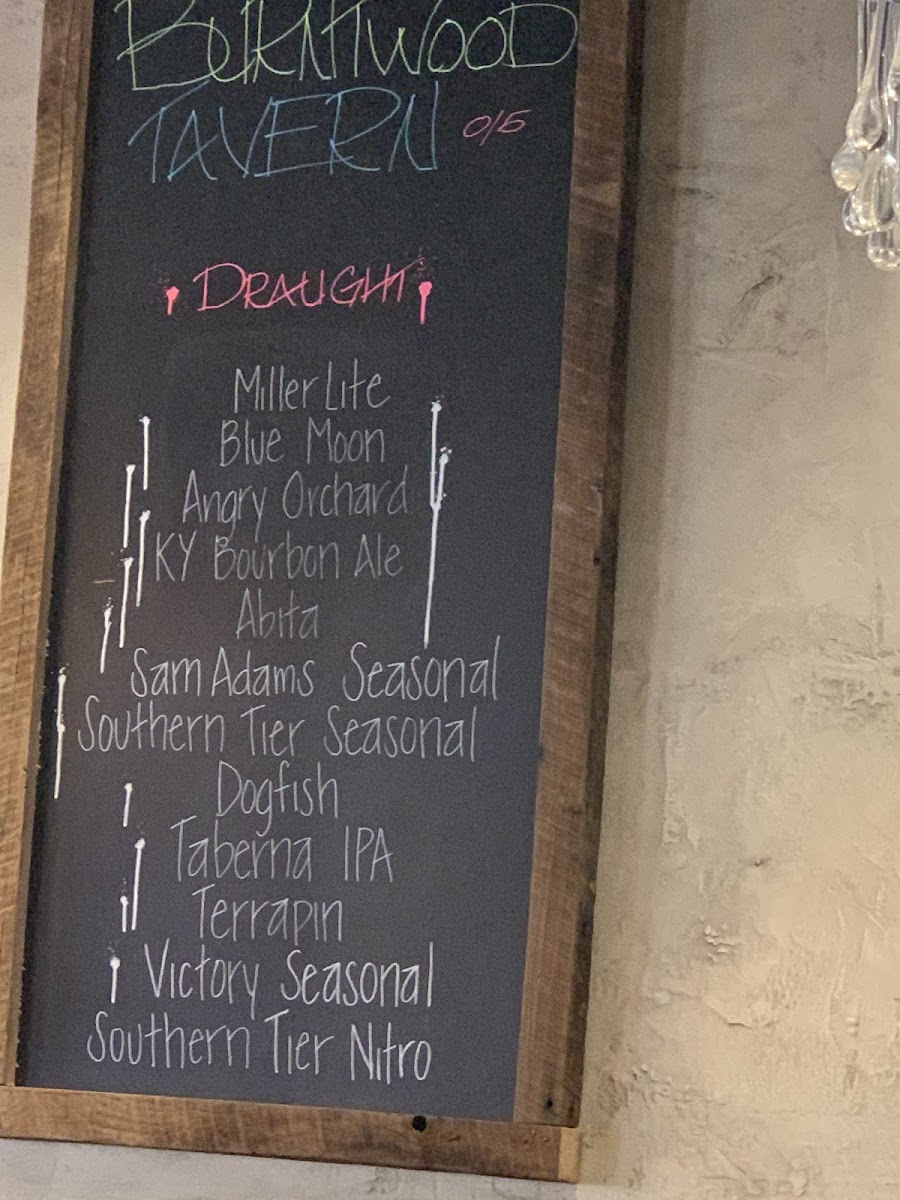 BURNTWOOD
TAVERN 0/5
DRAUGHT
Miller Lite
Blue Moon
Angry Orchard
KY Bourbon Ale
Abita
Sam Adams Seasonal
Southern Tier Seasonal
Dogfish
Taberna IPA
Terrapin
Victory Seasonal
Southern Tier Nitro